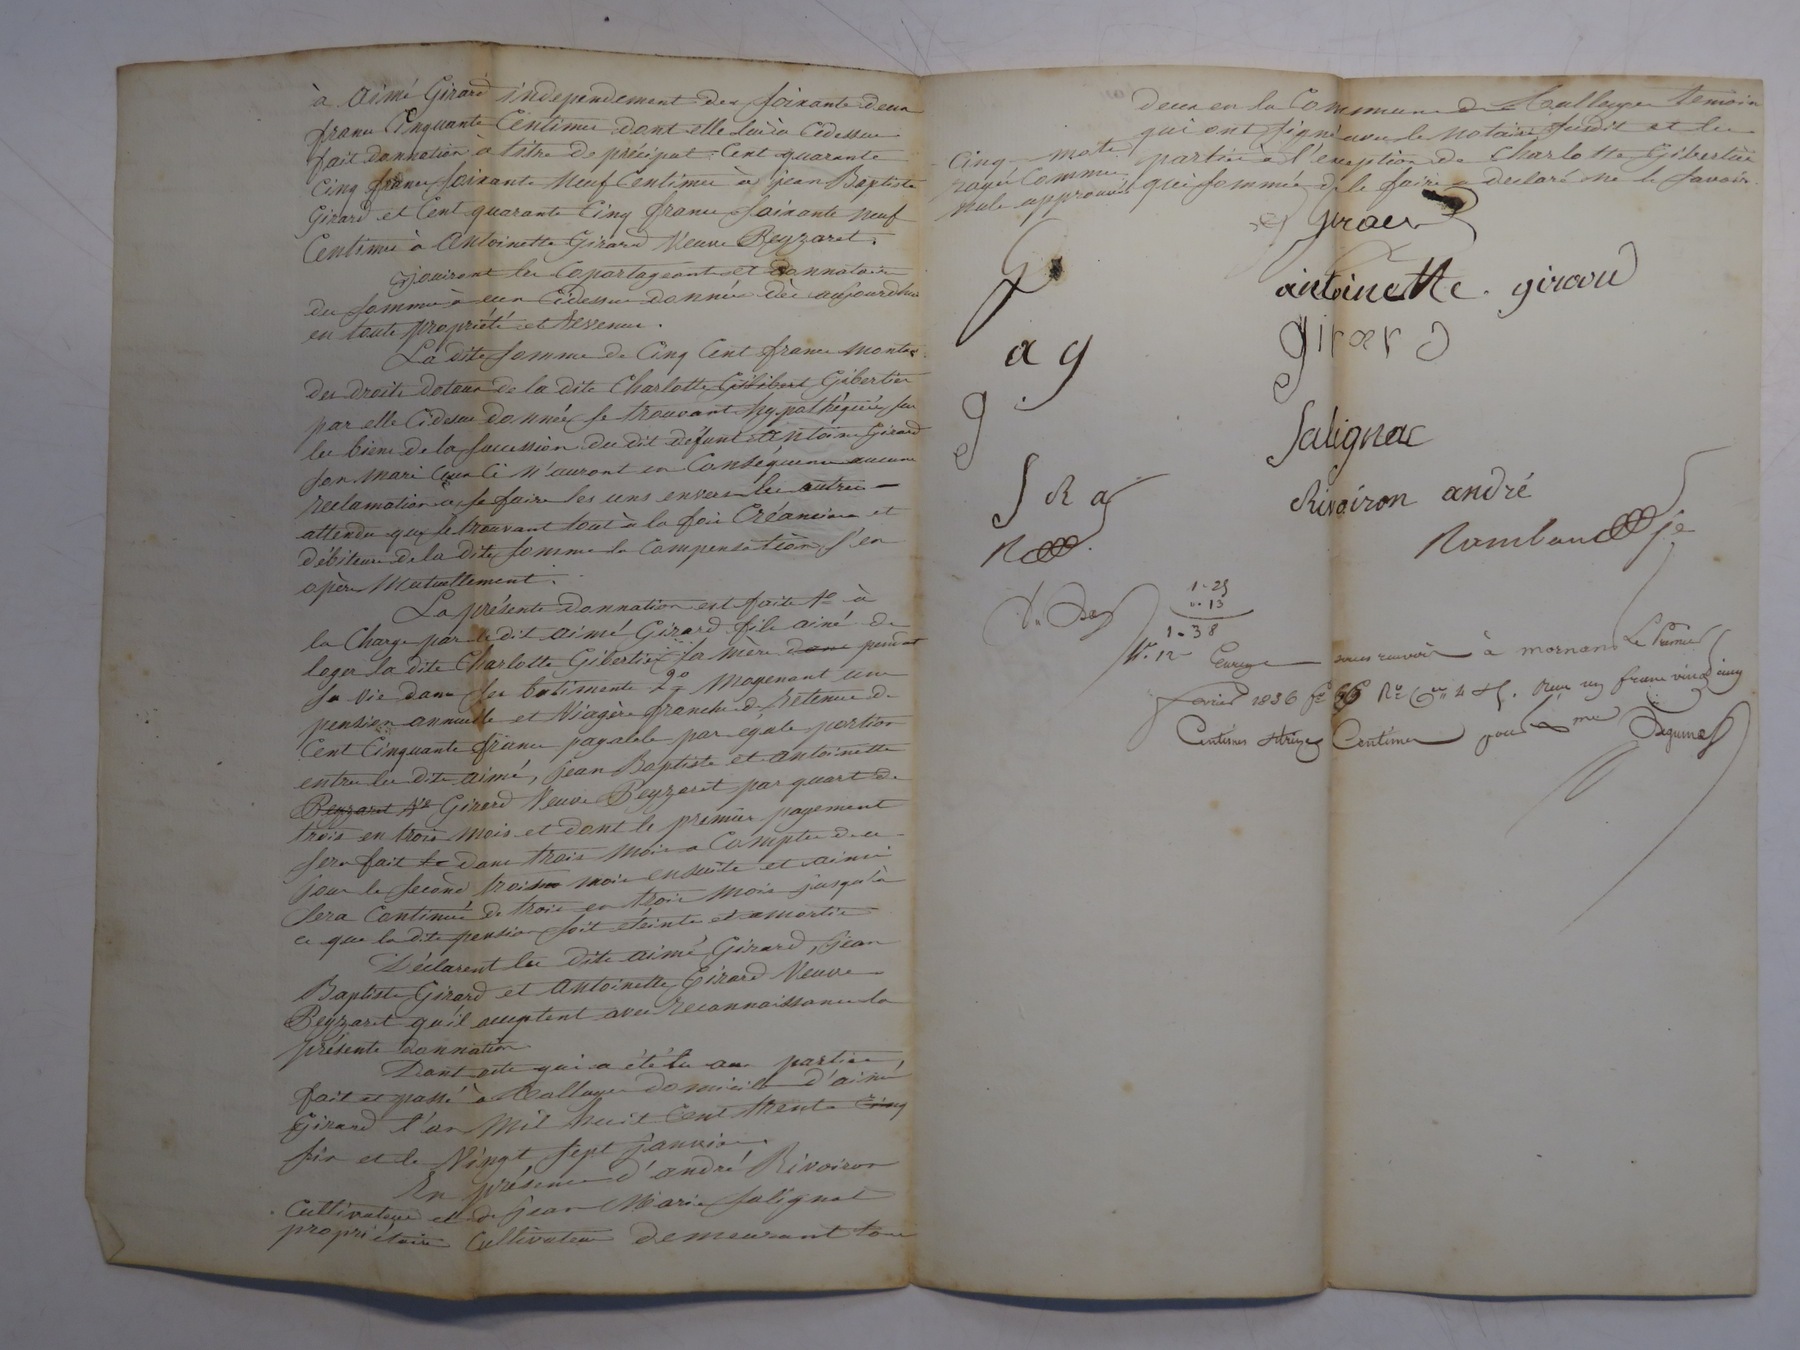 à Aimé Girard independement des soixante deux
francs Cinquante Centimes dont elle lui à Cidessus
fait donnation à titre de préciput. Cent quarante
Cinq francs soixante neuf Centimes à jean Baptiste
Girard et Cent quarante Cinq francs soixante neuf
Centimes à Antoinette Girard Veuve Beyzaret.
jouiront les Copartageants et donnataires
des sommes à eux Cidessus données dès aujourdhui
en toute propriété et Revenus.
La dite somme de Cinq Cent francs montant
des droits dotaux de la dite Charlotte Gilibert Gibertier
par elle Cidessus donnée se trouvant hypothéquée sur
les biens de la succession du dit défunt Antoine Girard
son mari Ceux Ci n'auront en Conséquence aucune
reclamation à se faire les uns envers les autres
attendu que se trouvant tout à la fois Créanciers et
débiteurs de la dite somme la Compensation s'en
opère Mutuellement.
La présente donnation est faite 1º à
la Charge par le dit aimé Girard fils ainé de
loger la dite Charlotte Gibertier sa mère dans pendant
sa vie dans ses batiments 2º Moyenant une
pension annuelle et Viagère franche de Retenue de
Cent Cinquante francs payable par égale portion
entre les dits aimé, jean Baptiste et Antoinette
Beyzaret Ve Girard Veuve Beyzaret par quart de
trois en trois mois et dont le premier payement
sera fait le dans trois mois a Compter de ce
jour le second trois mois ensuite et ainsi
sera Continué de trois en trois mois jusqu'à
ce que la dite pension soit éteinte et amortie
Déclarent les dits aimé Girard, jean
Baptiste Girard et Antoinette Girard Veuve
Beyzaret qu'il acceptent avec reconnaissance la
présente donnation
Dont acte qui a été lu aux parties,
fait et passé à domicile d'aimé
Girard l'an Mil huit Cent trente Cinq
six et le Vingt sept janvier.
En présence d'andré Rivoiron
Cultivateur et de jean Marie Salignat
propriétaire Cultivateur demeurant tous
deux en la Commune de temoins
qui ont signé avec le Notaire susdit et les
parties à l'exeption de Charlotte Gibertier
qui sommée de le faire a declaré ne le savoir.
Cinq mots
rayés Comme
nuls approuvés
Girard
G
antoinette. girard
a g
girard
g.
Salignac
S R a
Rivoiron andré
R
Rambaud
1.25
".13
1.38
Nº 12
Enregé sous recevoir à mornant Le Premier
fevrier 1836 fº Rº Cse 4 &5. Reçu un franc vingt cinq
Centimes & treize Centimes pour